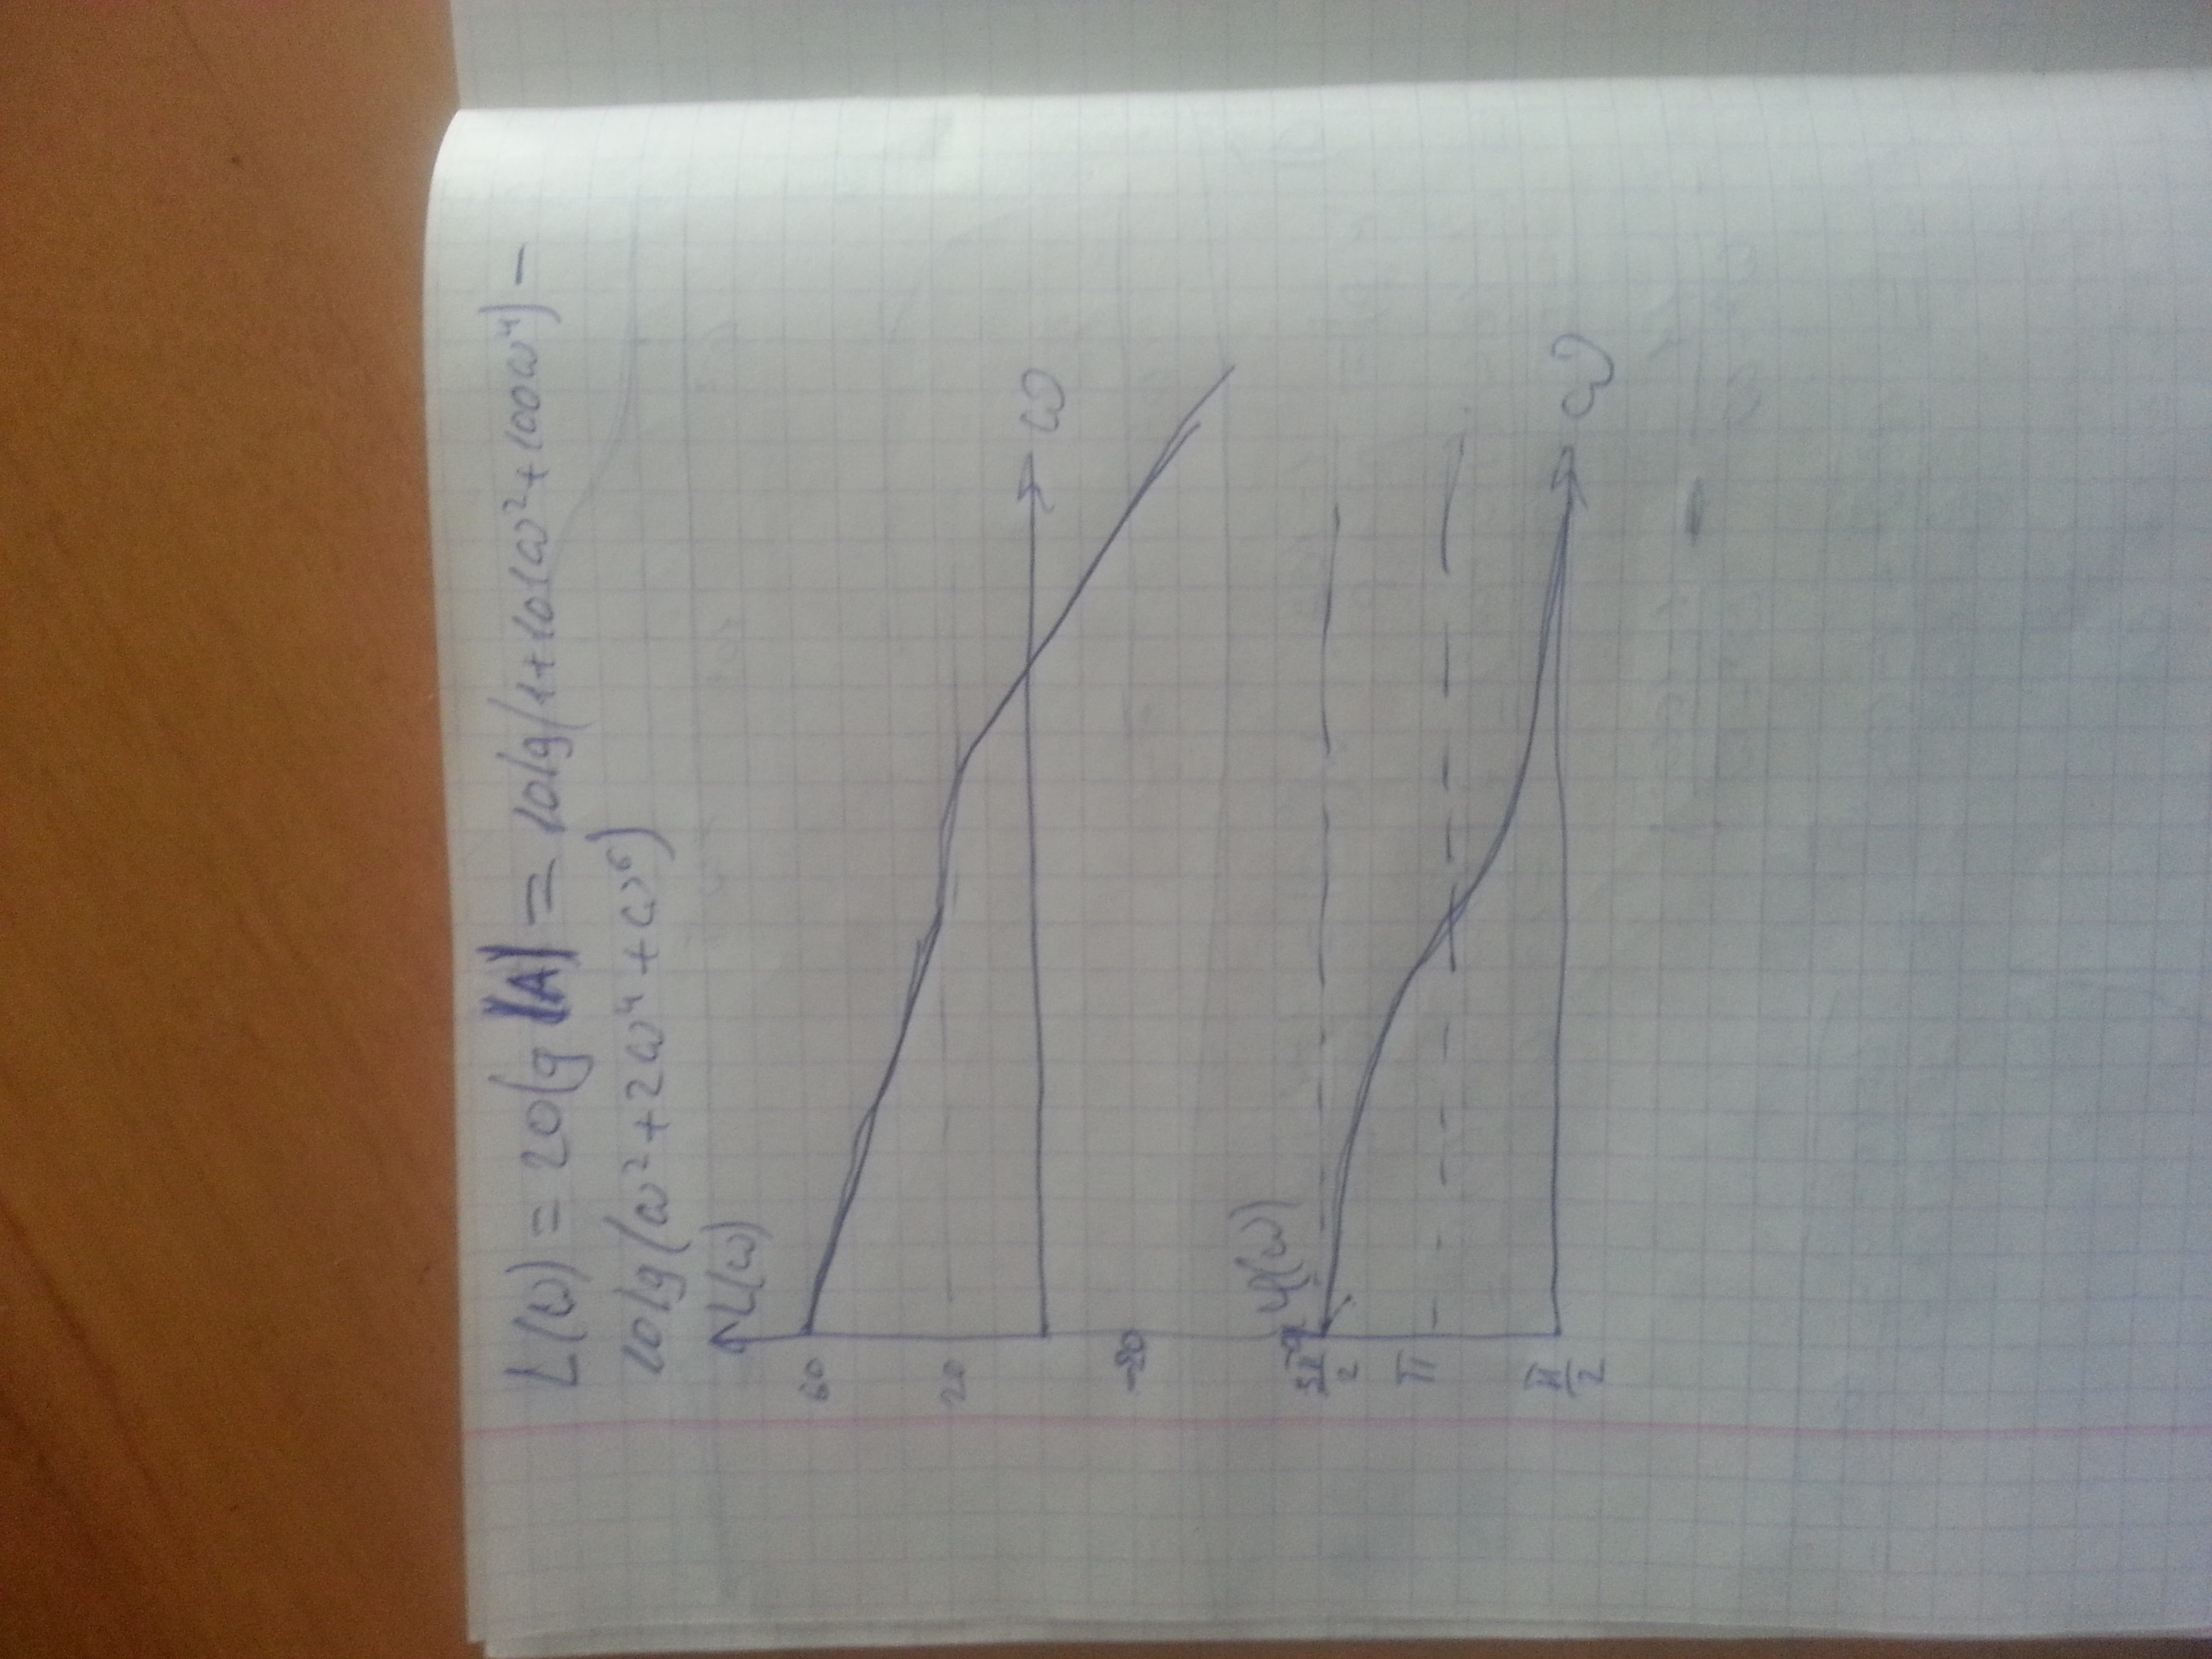 L(ω) = 20lg |A| = 10lg(1+101ω²+100ω⁴) −
10lg(ω²+2ω⁴+ω⁶)
L(ω)
60
20
ω
-20
φ(ω)
3π/2
π
π/2
ω